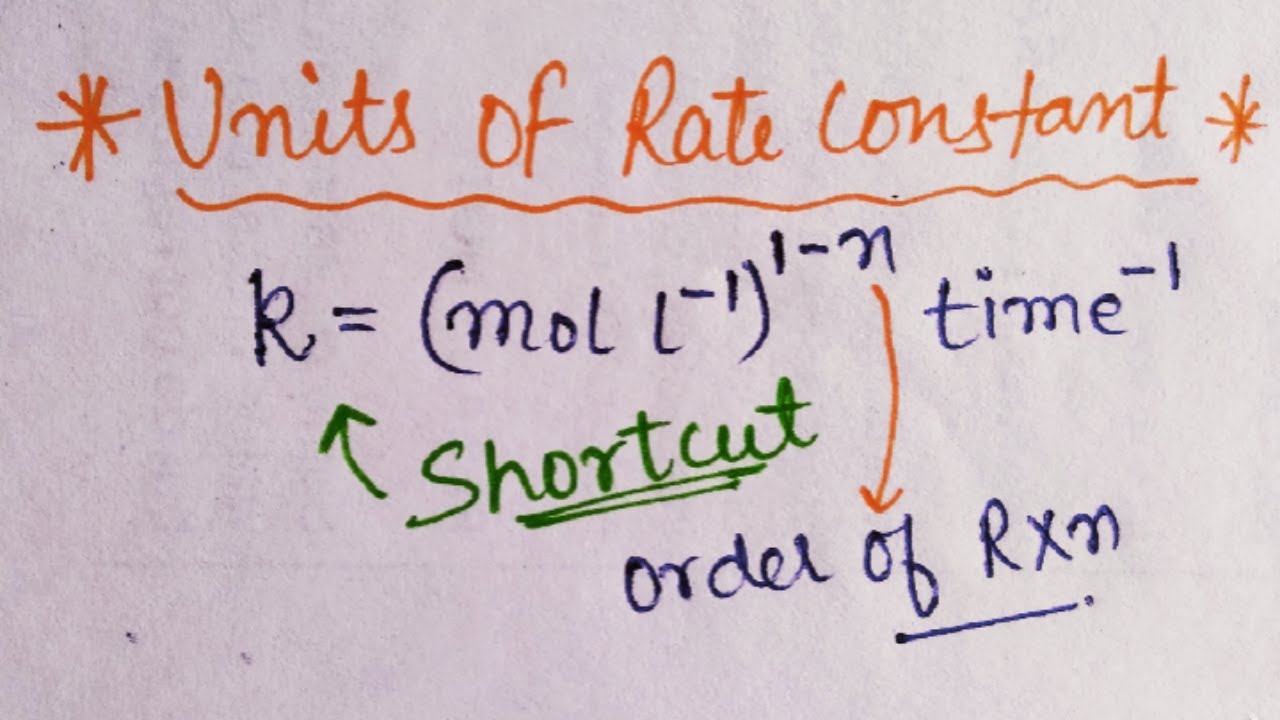 * Units of Rate Constant *
k = (mol l⁻¹)¹⁻ⁿ time⁻¹
Shortcut
order of Rxn